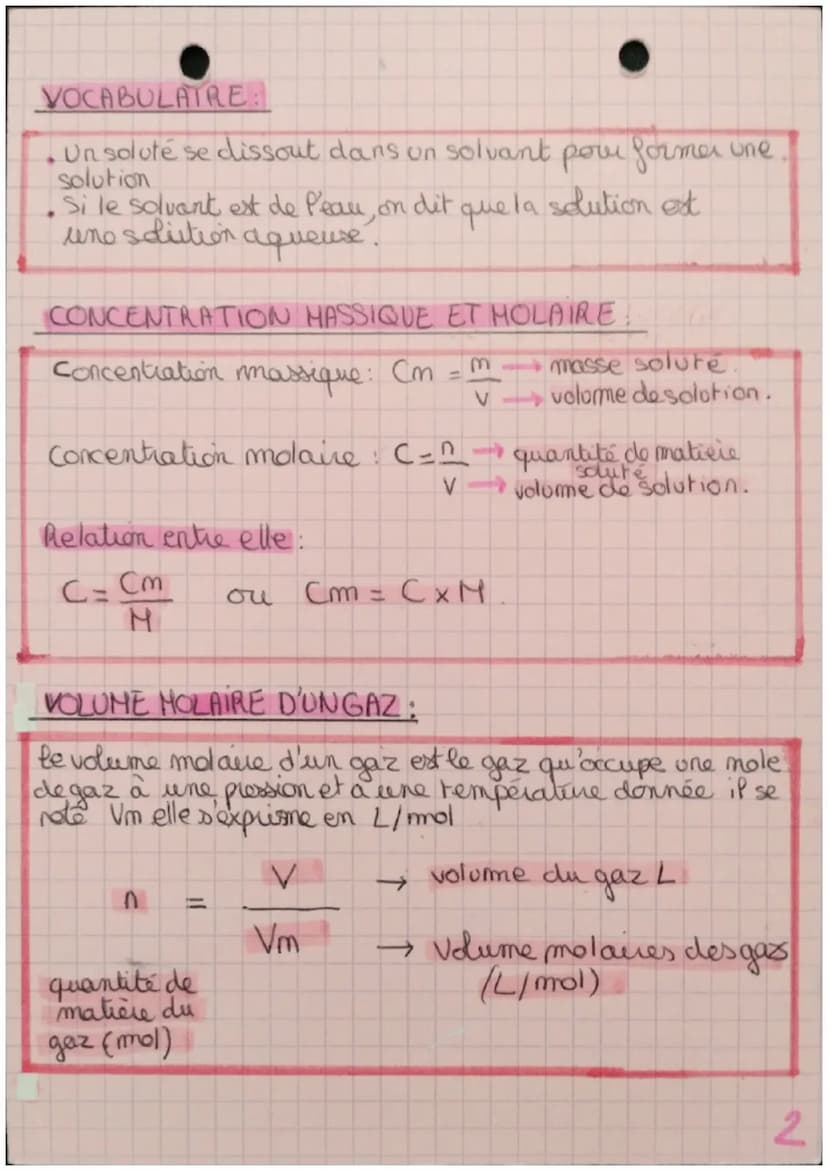 VOCABULAIRE:
. Un soluté se dissout dans un solvant pour former une
solution
. Si le solvant est de l'eau, on dit que la solution est
une solution aqueuse.
CONCENTRATION MASSIQUE ET MOLAIRE :
Concentration massique: Cm = m → masse soluté.
V → volume de solution.
Concentration molaire : C = n → quantité de matière
soluté
V → volume de solution.
Relation entre elle :
C = Cm ou Cm = C x M.
M
VOLUME MOLAIRE D'UN GAZ :
Le volume molaire d'un gaz est le gaz qu'occupe une mole
de gaz à une pression et à une température donnée il se
note Vm elle s'exprime en L/mol
V → volume du gaz L
n =
Vm → Volume molaires des gazs
(L/mol)
quantité de
matière du
gaz (mol)
2